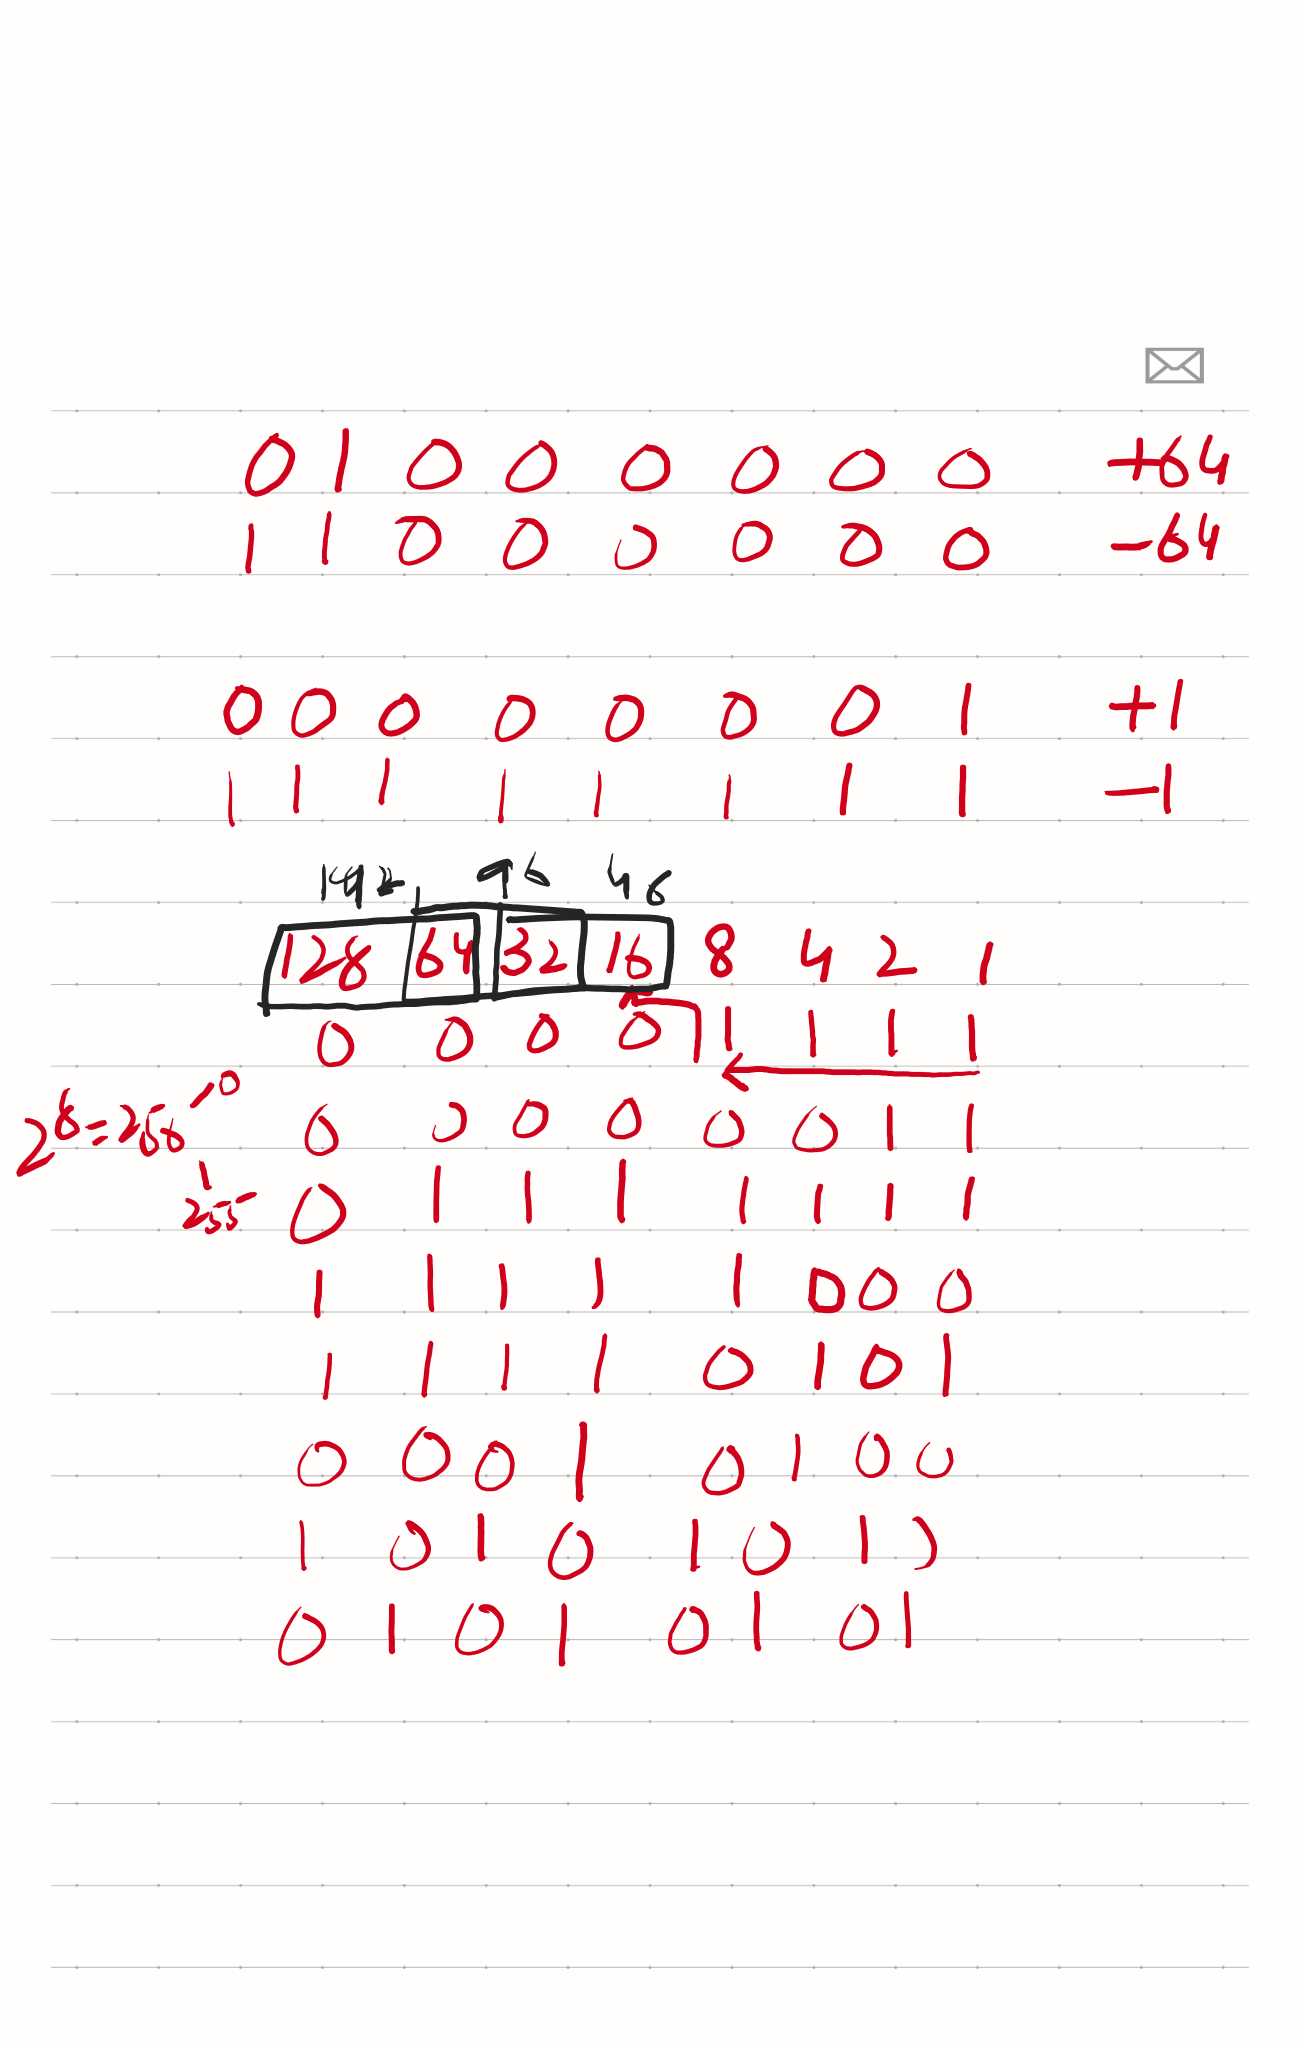 0 1 0 0 0 0 0 0 +64
1 1 0 0 0 0 0 0 -64
0 0 0 0 0 0 0 1 +1
1 1 1 1 1 1 1 1 -1
192 96 46
128 64 32 16 8 4 2 1
0 0 0 0 1 1 1 1
2^8=256 0
0 0 0 0 0 0 1 1
255
0 1 1 1 1 1 1 1
1 1 1 1 1 0 0 0
1 1 1 1 0 1 0 1
0 0 0 1 0 1 0 0
1 0 1 0 1 0 1 0
0 1 0 1 0 1 0 1